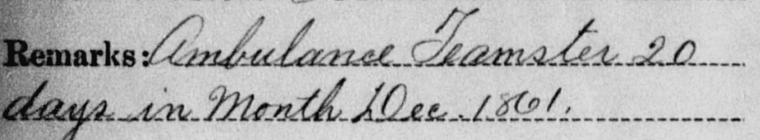 Remarks: Ambulance Teamster 20
days in Month Dec. 1861.